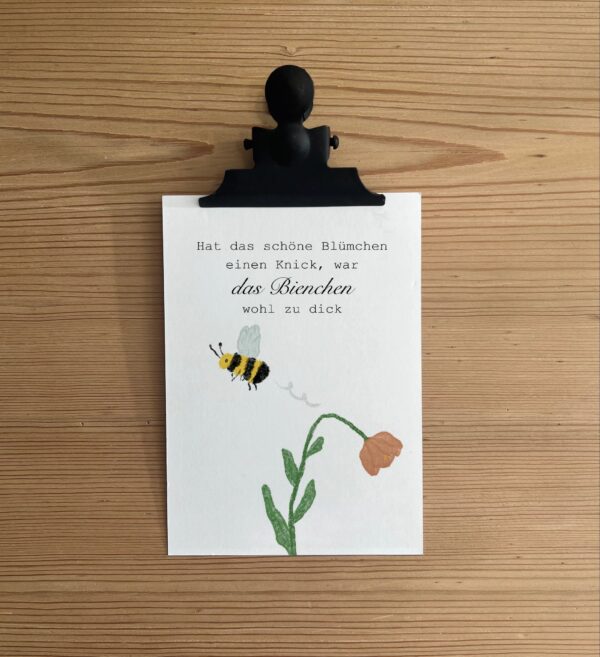 Hat das schöne Blümchen
einen Knick, war
das Bienchen
wohl zu dick